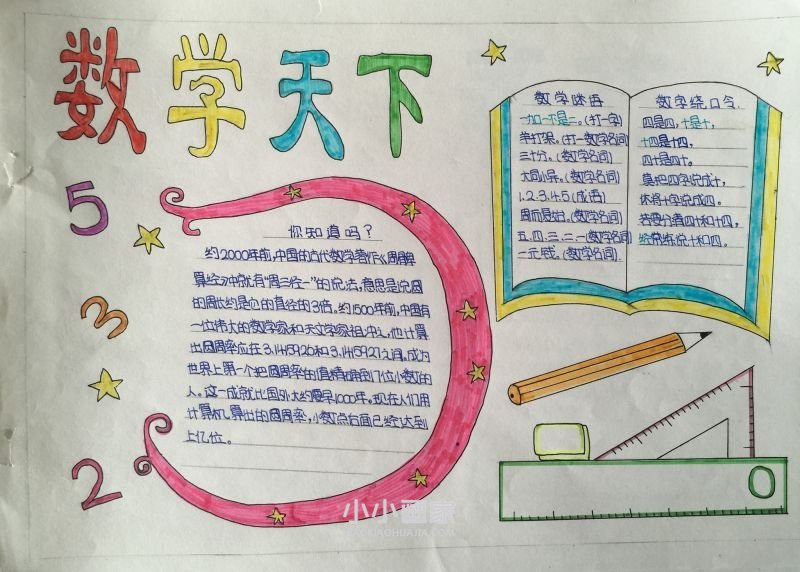 数学天下
5
3
2
你知道吗？
约2000年前，中国的古代数学著作《周髀
算经》中就有“周三径一”的说法，意思是说圆
的周长约是它的直径的3倍。约1500年前，中国有
一位伟大的数学家和天文学家祖冲之，他计算
出圆周率应在3.1415926和3.1415927之间，成为
世界上第一个把圆周率的值精确到7位小数的
人。这一成就比国外大约要早1000年。现在人们用
计算机算出的圆周率，小数点后面已经达到
上亿位。
数学谜语
一加一不是二。(打一字)
羊打架。(打一数学名词)
三十分。(数学名词)
大同小异。(数学名词)
1.2.3.4.5(成语)
周而复始。(数学名词)
五.四.三.二.一(数学名词)
二元钱。(数学名词)
数字绕口令
四是四，十是十，
十四是十四，
四十是四十。
莫把四字说成十，
休将十字说成四。
若要分清四十和十四，
经常练说十和四。
0
小小画家
XIAOXIAOHUAJIA.COM